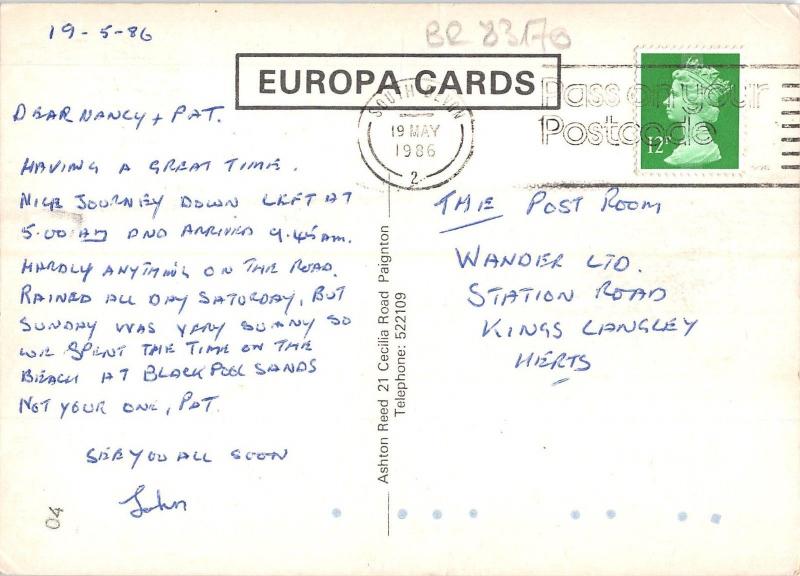 19-5-86
BR 83170
EUROPA CARDS
SOUTH DEVON
19 MAY
1986
2
Pass on your
Postcode
12P
DEAR NANCY + PAT.
HAVING A GREAT TIME.
NICE JOURNEY DOWN LEFT AT
5.00 AM AND ARRIVED 9.45AM.
HARDLY ANYTHING ON THE ROAD.
RAINED ALL DAY SATURDAY, BUT
SUNDAY WAS VERY SUNNY SO
WE SPENT THE TIME ON THE
BEACH AT BLACKPOOL SANDS
NOT YOUR ONE, PAT.
SEE YOU ALL SOON
John
04
Ashton Reed 21 Cecilia Road Paignton
Telephone: 522109
THE POST ROOM
WANDER LTD.
STATION ROAD
KINGS LANGLEY
HERTS